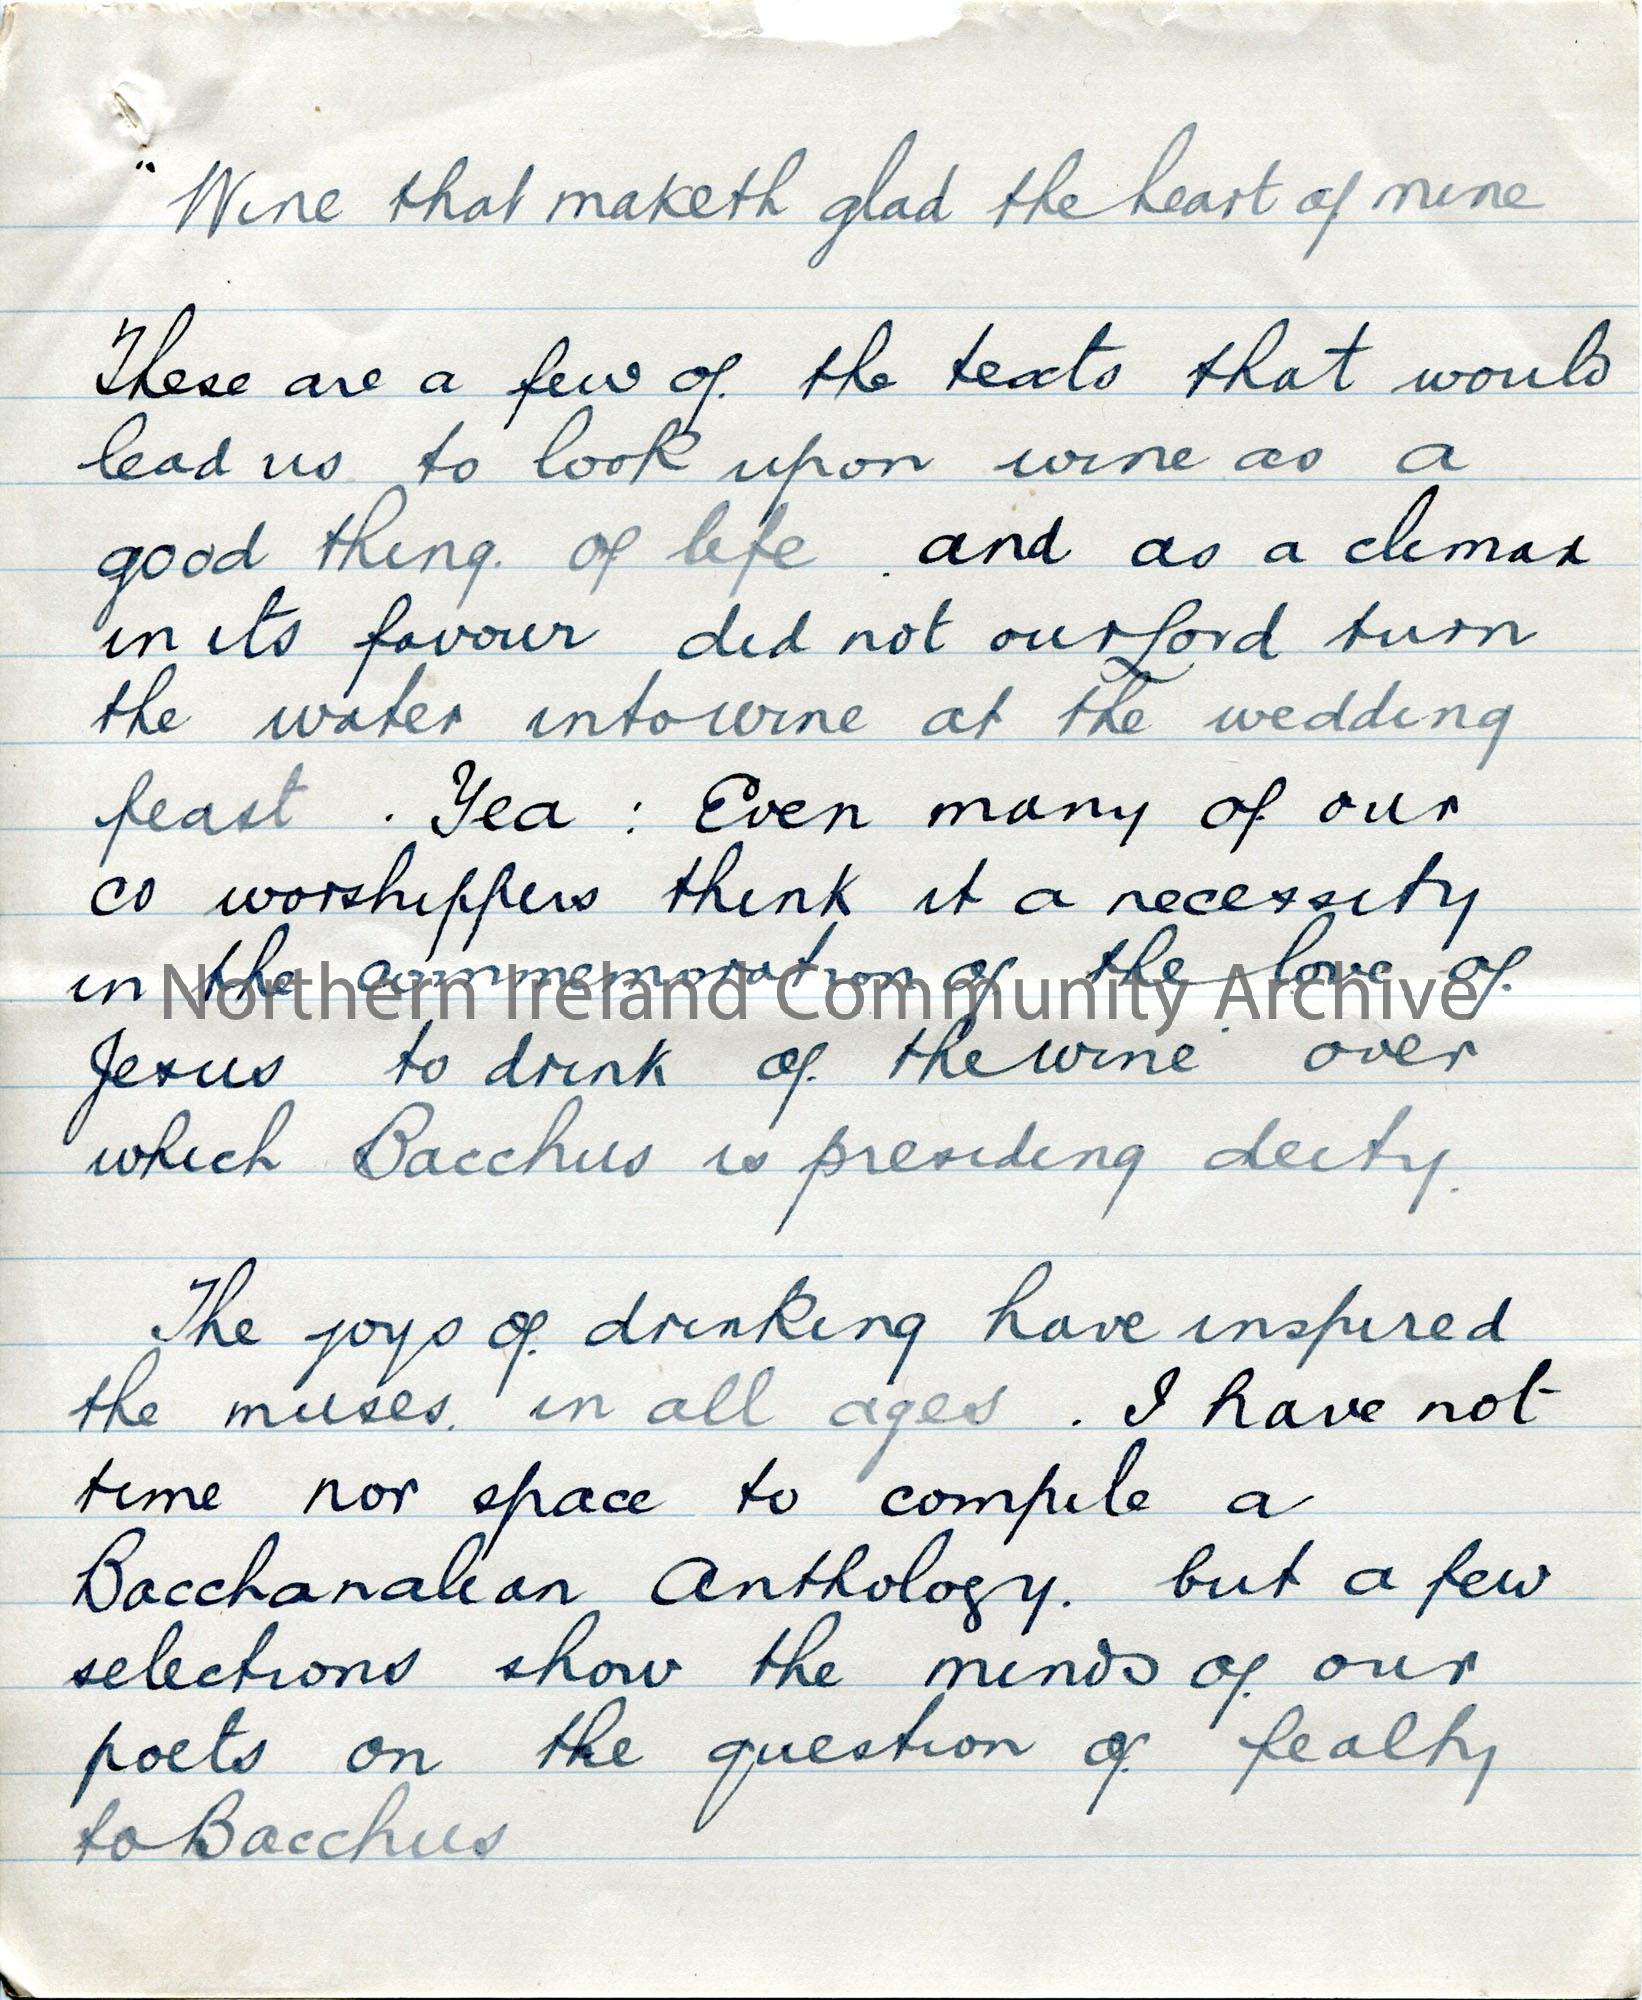 " Wine that maketh glad the heart of mine
These are a few of. the texts that would
lead us to look upon wine as a
good thing. of life . and as a climax
in its favour did not our Lord turn
the water into wine at the wedding
feast . Yea : Even many of our
co worshippers think it a necessity
in the commemoration of the love of.
Northern Ireland Community Archive
Jesus to drink of. the wine over
which Bacchus is presiding deity.
The joys of. drinking have inspired
the muses. in all ages . I have not
time nor space to compile a
Bacchanalian Anthology. but a few
selections show the minds of. our
poets on the question of. fealty
to Bacchus